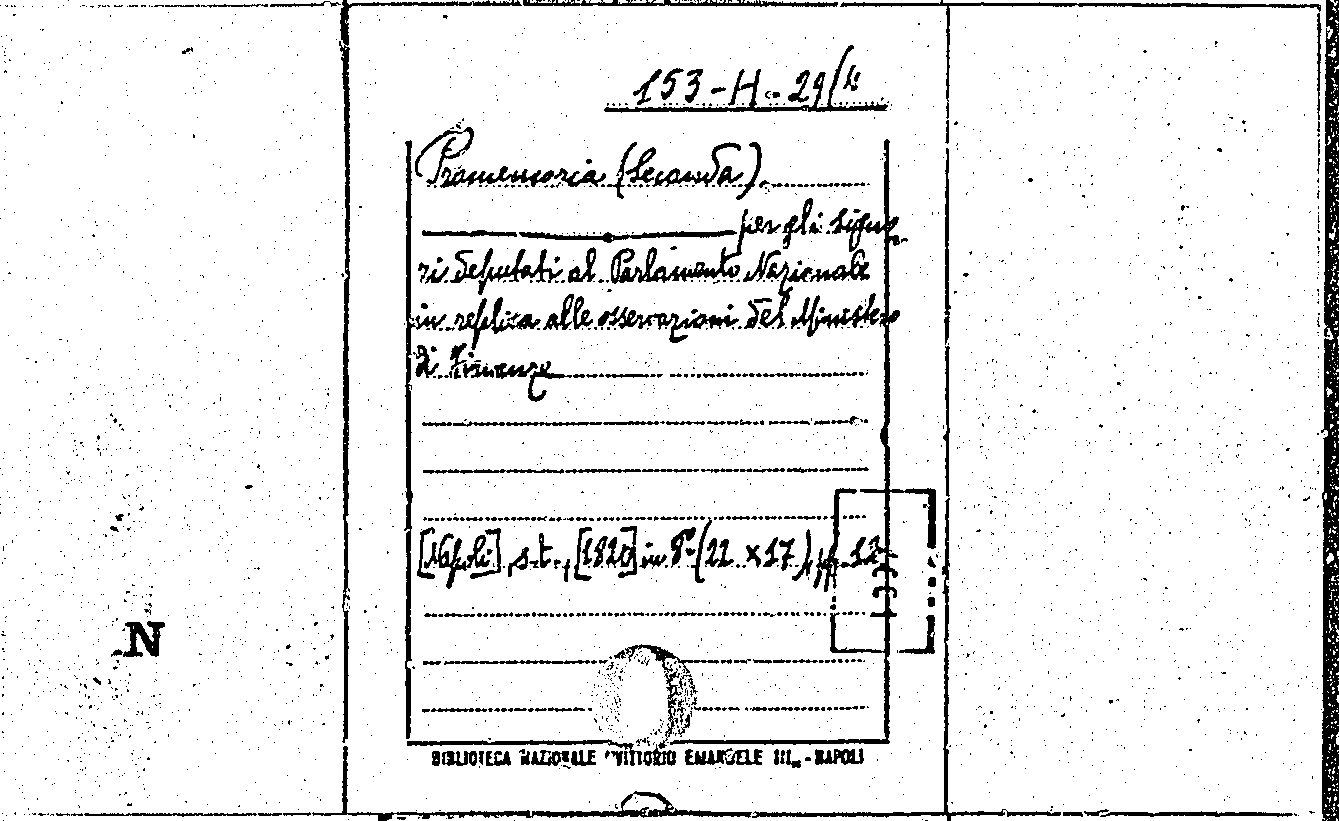 153-H-29/4
Promemoria (Seconda)
per gli signo-
ri deputati al Parlamento Nazionale
in replica alle osservazioni del Ministero
di Finanze
[Napoli], s.t., [1820] in 8º (22 x 17), pp. 12
1337
N
BIBLIOTECA NAZIONALE "VITTORIO EMANUELE III„ - NAPOLI